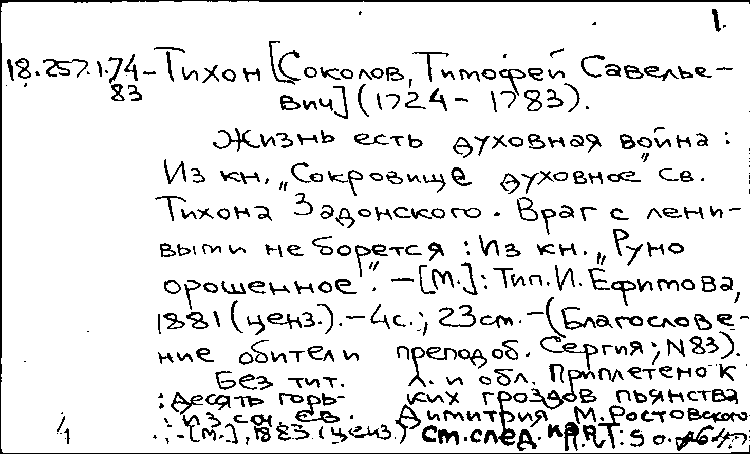 1.
18.257.1.74- Тихон [Соколов, Тимофей Савелье-
83 вич] (1724 - 1783).
Жизнь есть духовная война :
Из кн. „Сокровище духовное" Св.
Тихона Задонского. Враг с лени-
выми не борется : Из кн. „Руно
орошенное". - [М.] : Тип. И. Ефимова,
1881 (ценз.). - 4с.; 23см. - (Благослове-
ние обители преподоб. Сергия; N83).
Без тит. л. и обл. Приплетено к
: Десять горь- ких гроздов пьянства
: из соч. св. Димитрия М. Ростовского
. - [М.], 1883. (ценз.) См. след. карт.